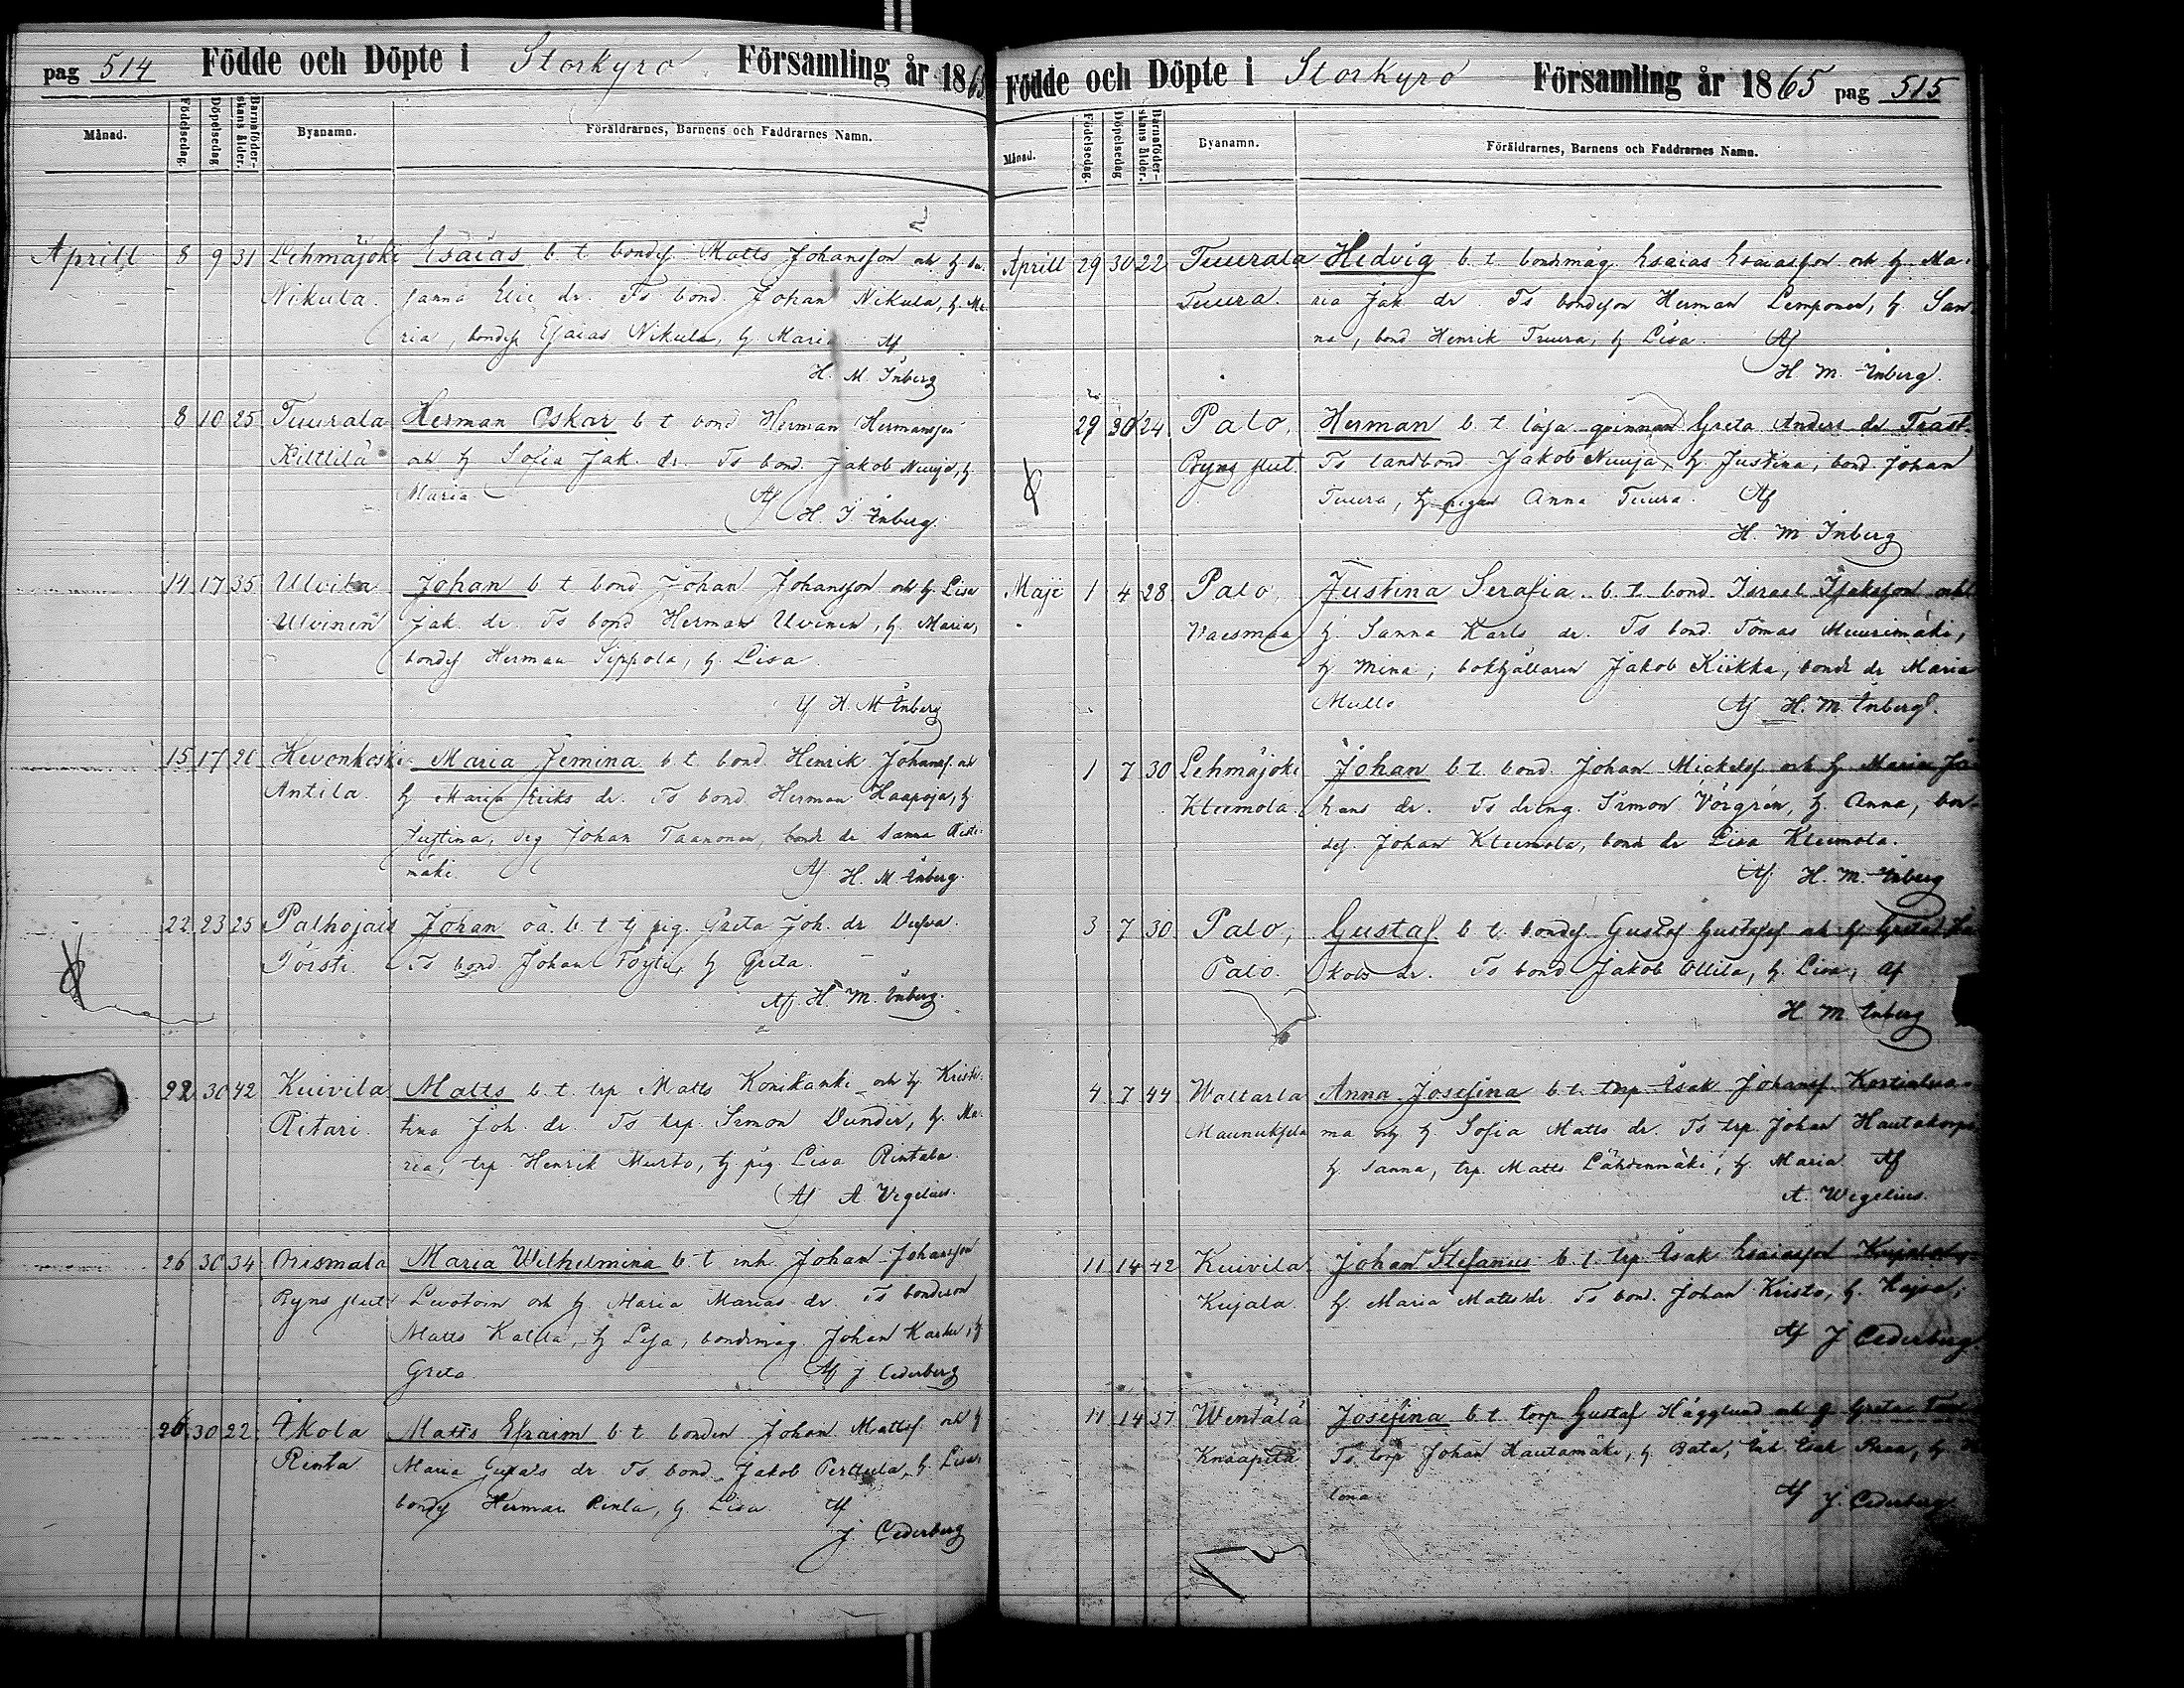 pag 514 Födde och Döpte i Storkyro Församling år 1865
Månad. Födelsedag. Döpelsedag Barnaföderskans ålder. Byanamn. Föräldrarnes, Barnens och Faddrarnes Namn.
Aprill 8 9 31 Lehmäjoki Esaias b t bondes Matts Johansson och h Su-
Nikula. sanna Elie dr. Ts bond. Johan Nikula, h. Ma-
ria, bondes Esaias Nikula, h Maria Af
H. M. Inberg
8 10 25 Tuurala Herman Oskar b t bond Herman Hermansson
Kilttilä och h Sofia Jak. dr. Ts bond. Jakob Nuuja, h.
Maria Af H. I Inberg.
14 17 35 Ulvila Johan b t bond Johan Johansson och h. Lisa
Ulvinen Jak. dr. Ts bond Herman Ulvinen, h. Maria,
bondes Herman Sippola, h. Lisa
Af H. M Inberg
15 17 20 Hevonkoski Maria Jemina b t bond Henrik Johanss. och
Antila. h Maria Eriks dr. Ts bond Herman Haapoja, h
Justina, Johan Taanonen, bonde dr Sanna
mäki. Af H. M. Inberg.
22 23 25 Palhojais Johan oä. b t tj pig. Greta Joh. dr
Törsti. Ts bond Johan h Greta.
Af. H. M. Inberg.
22 30 42 Kuivila Matts b. t. trp Matts och h Kristi-
Ritari. tina Joh. dr. Ts trp. Simon Dunder, h. Ma-
ria, trp. Henrik Murto, tj pig. Lisa Rintala.
Af A Vegelius.
26 30 34 Orismala Maria Wilhelmina b t inh. Johan Johansson
Ryns slut och h Maria Marias dr. Ts bondeson
Matts h Lisa, bondemåg Johan h
Greta Af J Cederberg
26 30 22 Ikola Matts Efraim b t bonden Johan Mattss. och h
Rinta Maria dr. Ts bond. Jakob Perttula, h. Lisa,
bondes Herman Rinta, h. Lisa Af
J Cederberg
Födde och Döpte i Storkyro Församling år 1865 pag 515
Månad. Födelsedag. Döpelsedag Barnaföderskans ålder. Byanamn. Föräldrarnes, Barnens och Faddrarnes Namn.
Aprill 29 30 22 Tuurala Hedvig b t. bondemåg Esaias Esaiasson och h. Ma-
Tuura. ria Jak dr Ts bondeson Herman Lemponen, h. San-
na, bond Henrik Tuura, h Lisa. Af
H. M. Inberg.
29 30 24 Palo, Herman b t lösa qvinnan Greta Anders dr Trast.
Ryns slut. Ts landbond Jakob Nuuja, h. Justina, bond. Johan
Tuura, tj pigan Anna Tuura. Af
H. M Inberg
Maji 1 4 28 Palo, Justina Serafia b. t. bond Israel Isaksson och
Vaesmaa h. Sanna Karls dr. Ts bond. Tomas Muurimäki,
h Mina, bokhållaren Jakob Kiikka, bonde dr Maria
Mullo Af H. M. Inberg.
1 7 30 Lehmäjoki Johan b t. bond. Johan Mickelss. och h Maria Jo-
Kleemola. hans dr. Ts dreng. Simon Vörgren, h. Anna, bon-
des. Johan Kleemola, bonde dr Lisa Kleemola.
Af H. M. Inberg
3 7 30 Palo, Gustaf b t. bondes. Gustaf Gustafss och h Greta Ja-
Palo. kobs dr. Ts bond Jakob Ollila, h. Lisa, Af
H M Inberg
4 7 44 Waltarla Anna Josefina b. t. trp. Isak Johanss
Maunuksela ma och h. Sofia Matts dr. Ts trp. Johan Hautakorpi,
h. Sanna, trp. Matts Lähdenmäki, h. Maria Af
A. Wegelius.
11 14 42 Kuivila Johan Stefanus b. t. trp. Isak Esaiasson
Kujala. h. Maria Matts dr. Ts bond. Johan Kristo, h. Kajsa,
Af J Cederberg.
11 14 37 Wentälä Josefina b. t. torp Gustaf Hägglund och h Greta
Knaapila Ts torp Johan Hautamäki, h Beata, Isak h
lena Af J. Cederberg